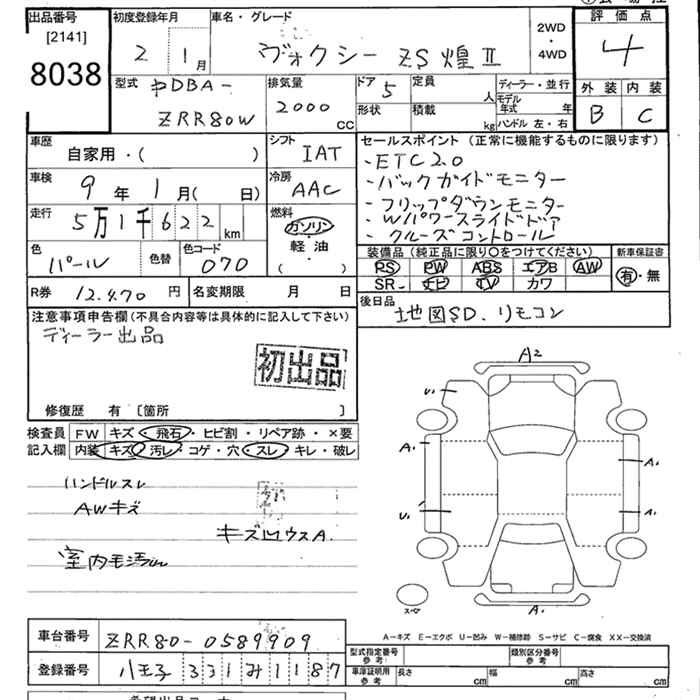 出品番号
[2141]
8038
初度登録年月
2 1月
車名・グレード
ヴォクシー ZS 煌 II
2WD
・
4WD
評価点
4
外装 内装
B C
型式
DBA-
ZRR80W
排気量
2000
CC
ドア
5
定員
人
形状
積載
kg
ディーラー・並行
モデル
年式 年
ハンドル 左・右
車歴
自家用・( )
シフト
IAT
車検
9年 1月( 日)
冷房
AAC
走行
5万1千622
km
燃料
ガソリン
・
軽油
( )
色
パール
色替
色コード
070
R券 12,470 円
名変期限 月 日
セールスポイント (正常に機能するものに限ります)
・ETC2.0
・バックガイドモニター
・フリップダウンモニター
・Wパワースライドドア
・クルーズコントロール
装備品 (純正品に限り○をつけてください)
PS PW ABS エアB AW
SR ナビ TV カワ
新車保証書
有・無
後日品
地図SD. リモコン
注意事項申告欄(不具合内容等は具体的に記入して下さい)
ディーラー出品
初出品
修復歴 有 [箇所 ]
検査員
記入欄
FW キズ・飛石・ヒビ割・リペア跡・×要
内装 キズ・汚レ・コゲ・穴・スレ・キレ・破レ
ハンドルスレ
AWキズ
キズ凹ウスA.
室内モ汚レ
A2
U.
A.
A.
U.
A.
A.
スペア
A-キズ E-エクボ U-凹み W-補修跡 S-サビ C-腐食 XX-交換済
車台番号 ZRR80-0589909
登録番号 八王子 331 み 1187
型式指定番号
参考
類別区分番号
参考
車庫証明用
参考
長さ cm 幅 cm 高さ cm